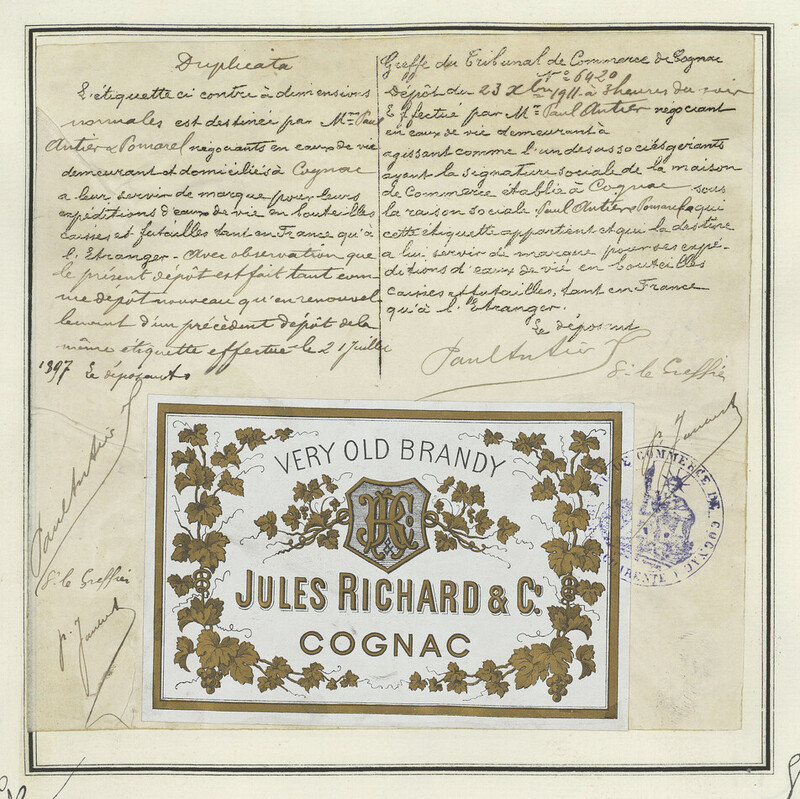 Duplicata
L'étiquette ci contre à dimensions
normales est destinée par Mrs Paul
Antier & Pomarel négociants en eaux de vie
demeurant et domiciliés à Cognac
a leur servir de marque pour leurs
expéditions d'eaux de vie en bouteilles
caisses et futailles tant en France qu'à
l'Etranger - Avec observation que
le présent dépôt est fait tant com
me dépôt nouveau qu'en renouvel
lement d'un précédent dépôt de la
même étiquette effectué le 21 Juillet
1897 Le déposant
Paul Antier
Sé: le Greffier
Greffe du Tribunal de Commerce de Cognac
No 6420
Dépôt du 23 Xbre 1911 à 3 heures du soir
Effectué par Mr Paul Antier négociant
en eaux de vie demeurant à
agissant comme l'un des associés gérants
ayant la signature sociale de la maison
de Commerce établie à Cognac sous
la raison sociale Paul Antier & Pomarel a qui
cette étiquette appartient et qui la destine
a lui servir de marque pour ses expé-
ditions d'eaux de vie en bouteilles
caisses et futailles, tant en France
qu'à l'Etranger.
Le déposant
Paul Antier
Sé: le Greffier
COMMERCE DE COGNAC
CHARENTE
VERY OLD BRANDY
JULES RICHARD & Co:
COGNAC